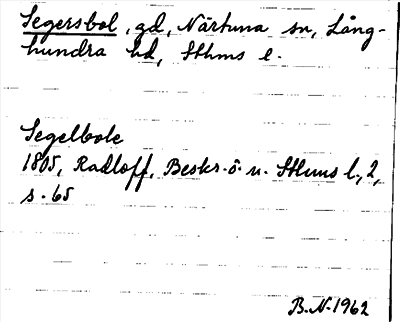 Segersbol, gd, Närtuna sn, Lång-
hundra hd, Sthms l.
Segelbole
1805, Radloff, Beskr. ö. n. Sthms l., 2,
s. 65
B.N. 1962